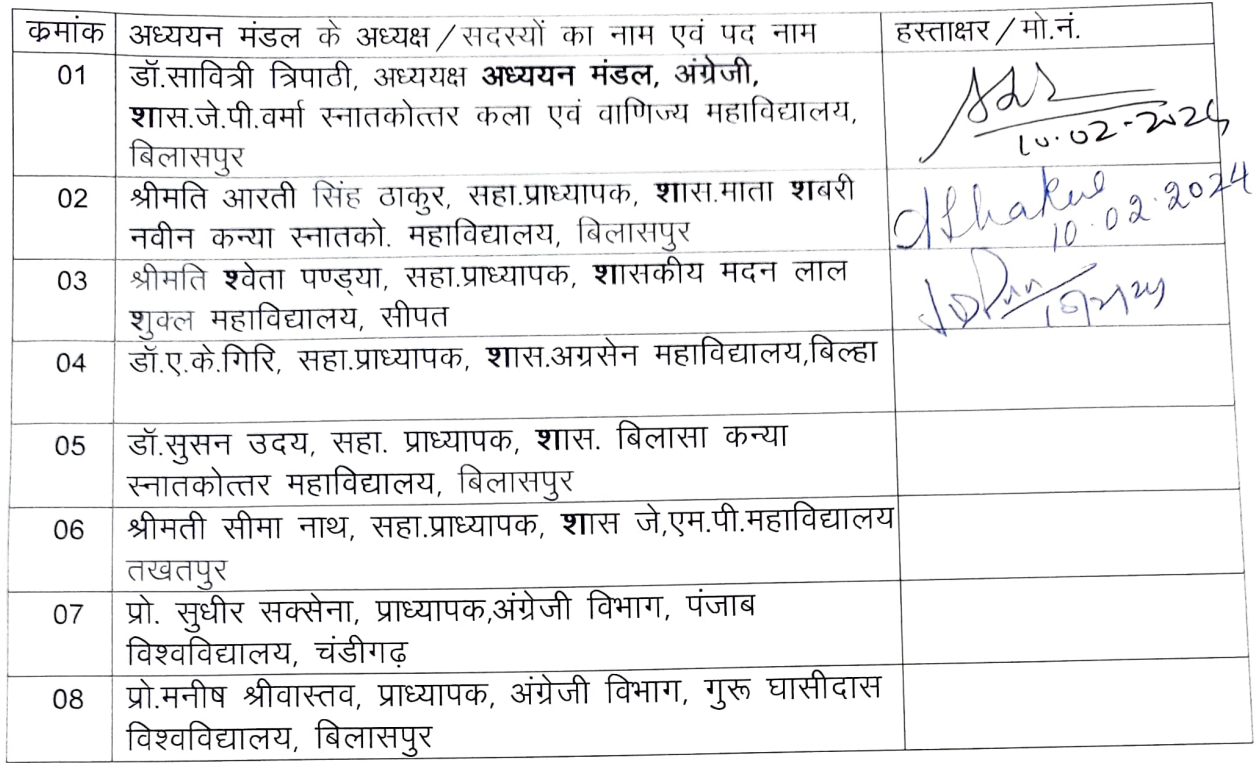 क्रमांक अध्ययन मंडल के अध्यक्ष/सदस्यों का नाम एवं पद नाम हस्ताक्षर/मो.नं.
01 डॉ.सावित्री त्रिपाठी, अध्ययक्ष अध्ययन मंडल, अंग्रेजी,
शास.जे.पी.वर्मा स्नातकोत्तर कला एवं वाणिज्य महाविद्यालय,
बिलासपुर
10.02-2024
02 श्रीमति आरती सिंह ठाकुर, सहा.प्राध्यापक, शास.माता शबरी
नवीन कन्या स्नातको. महाविद्यालय, बिलासपुर
10.02.2024
03 श्रीमति श्वेता पण्ड्या, सहा.प्राध्यापक, शासकीय मदन लाल
शुक्ल महाविद्यालय, सीपत
04 डॉ.ए.के.गिरि, सहा.प्राध्यापक, शास.अग्रसेन महाविद्यालय,बिल्हा
05 डॉ.सुसन उदय, सहा. प्राध्यापक, शास. बिलासा कन्या
स्नातकोत्तर महाविद्यालय, बिलासपुर
06 श्रीमती सीमा नाथ, सहा.प्राध्यापक, शास जे,एम.पी.महाविद्यालय
तखतपुर
07 प्रो. सुधीर सक्सेना, प्राध्यापक,अंग्रेजी विभाग, पंजाब
विश्वविद्यालय, चंडीगढ़
08 प्रो.मनीष श्रीवास्तव, प्राध्यापक, अंग्रेजी विभाग, गुरू घासीदास
विश्वविद्यालय, बिलासपुर